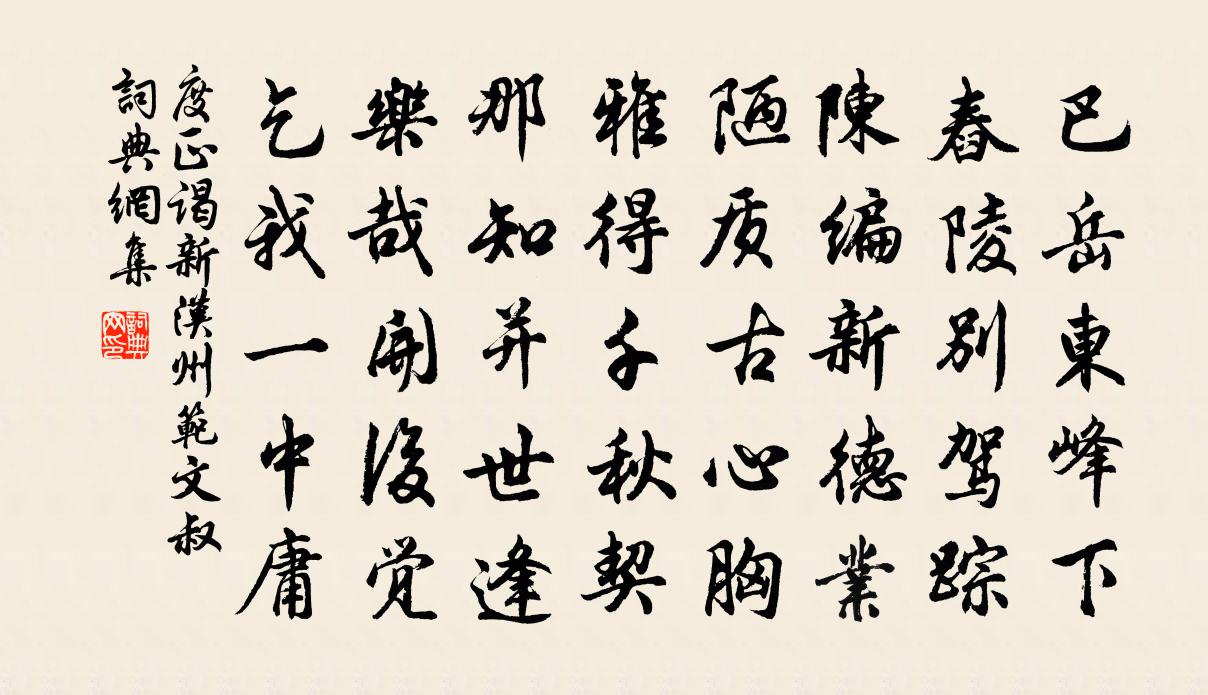 巴岳東峰下
舂陵別驾踪
陳編新德業
陋质古心胸
雅得千秋契
那知并世逢
樂哉開後觉
乞我一中庸
度正謁新漢州範文叔
詞典網集